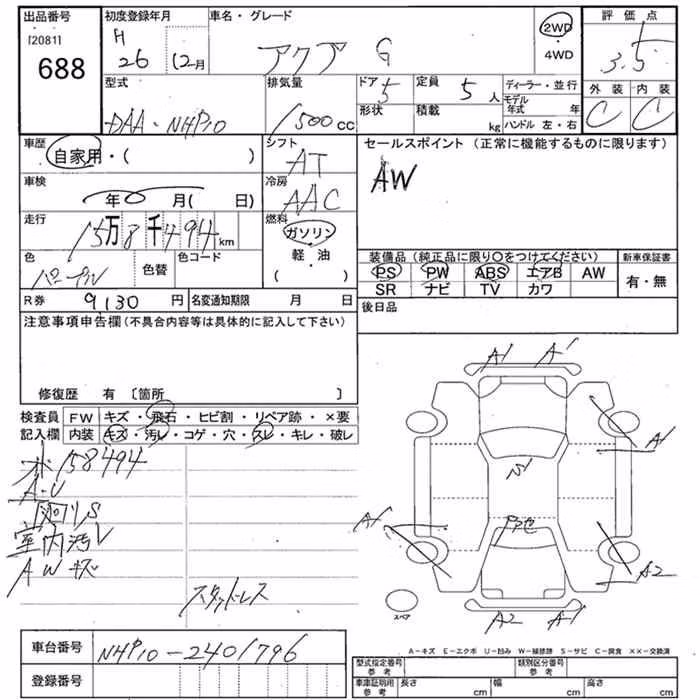 出品番号 初度登録年月 車名・グレード 2WD 評価点
[2081] H
688 26 12月 アクア G ・4WD 3.5
型式 排気量 ドア 5 定員 5人 ディーラー・並行 外装 内装
DAA-NHP10 1500cc 形状 積載 kg モデル年式 年 C C
ハンドル 左・右
車歴 シフト セールスポイント (正常に機能するものに限ります)
自家用・( ) AT AW
車検 冷房
年 月( 日) AAC
走行 燃料
15万8千494km ガソリン 装備品 (純正品に限り○をつけてください) 新車保証書
色 色替 色コード 軽・油 PS PW ABS エアB AW 有・無
パープル ( ) SR ナビ TV カワ
R券 9130円 名変通知期限 月 日 後日品
注意事項申告欄(不具合内容等は具体的に記入して下さい)
修復歴 有 〔箇所 〕
検査員 FW キズ・飛石・ヒビ割・リペア跡・×要
記入欄 内装 キズ・汚レ・コゲ・穴・スレ・キレ・破レ
158494
A・U
室内汚レ
AWキズ
スタッドレス
A1 A1
A1
A1
A2
A2 A1
スペア
A-キズ E-エクボ U-凹み W-補修跡 S-サビ C-腐食 XX-交換済
車台番号 NHP10-2401796
登録番号
型式指定番号 参考 類別区分番号 参考
車庫証明用 参考 長さ cm 幅 cm 高さ cm